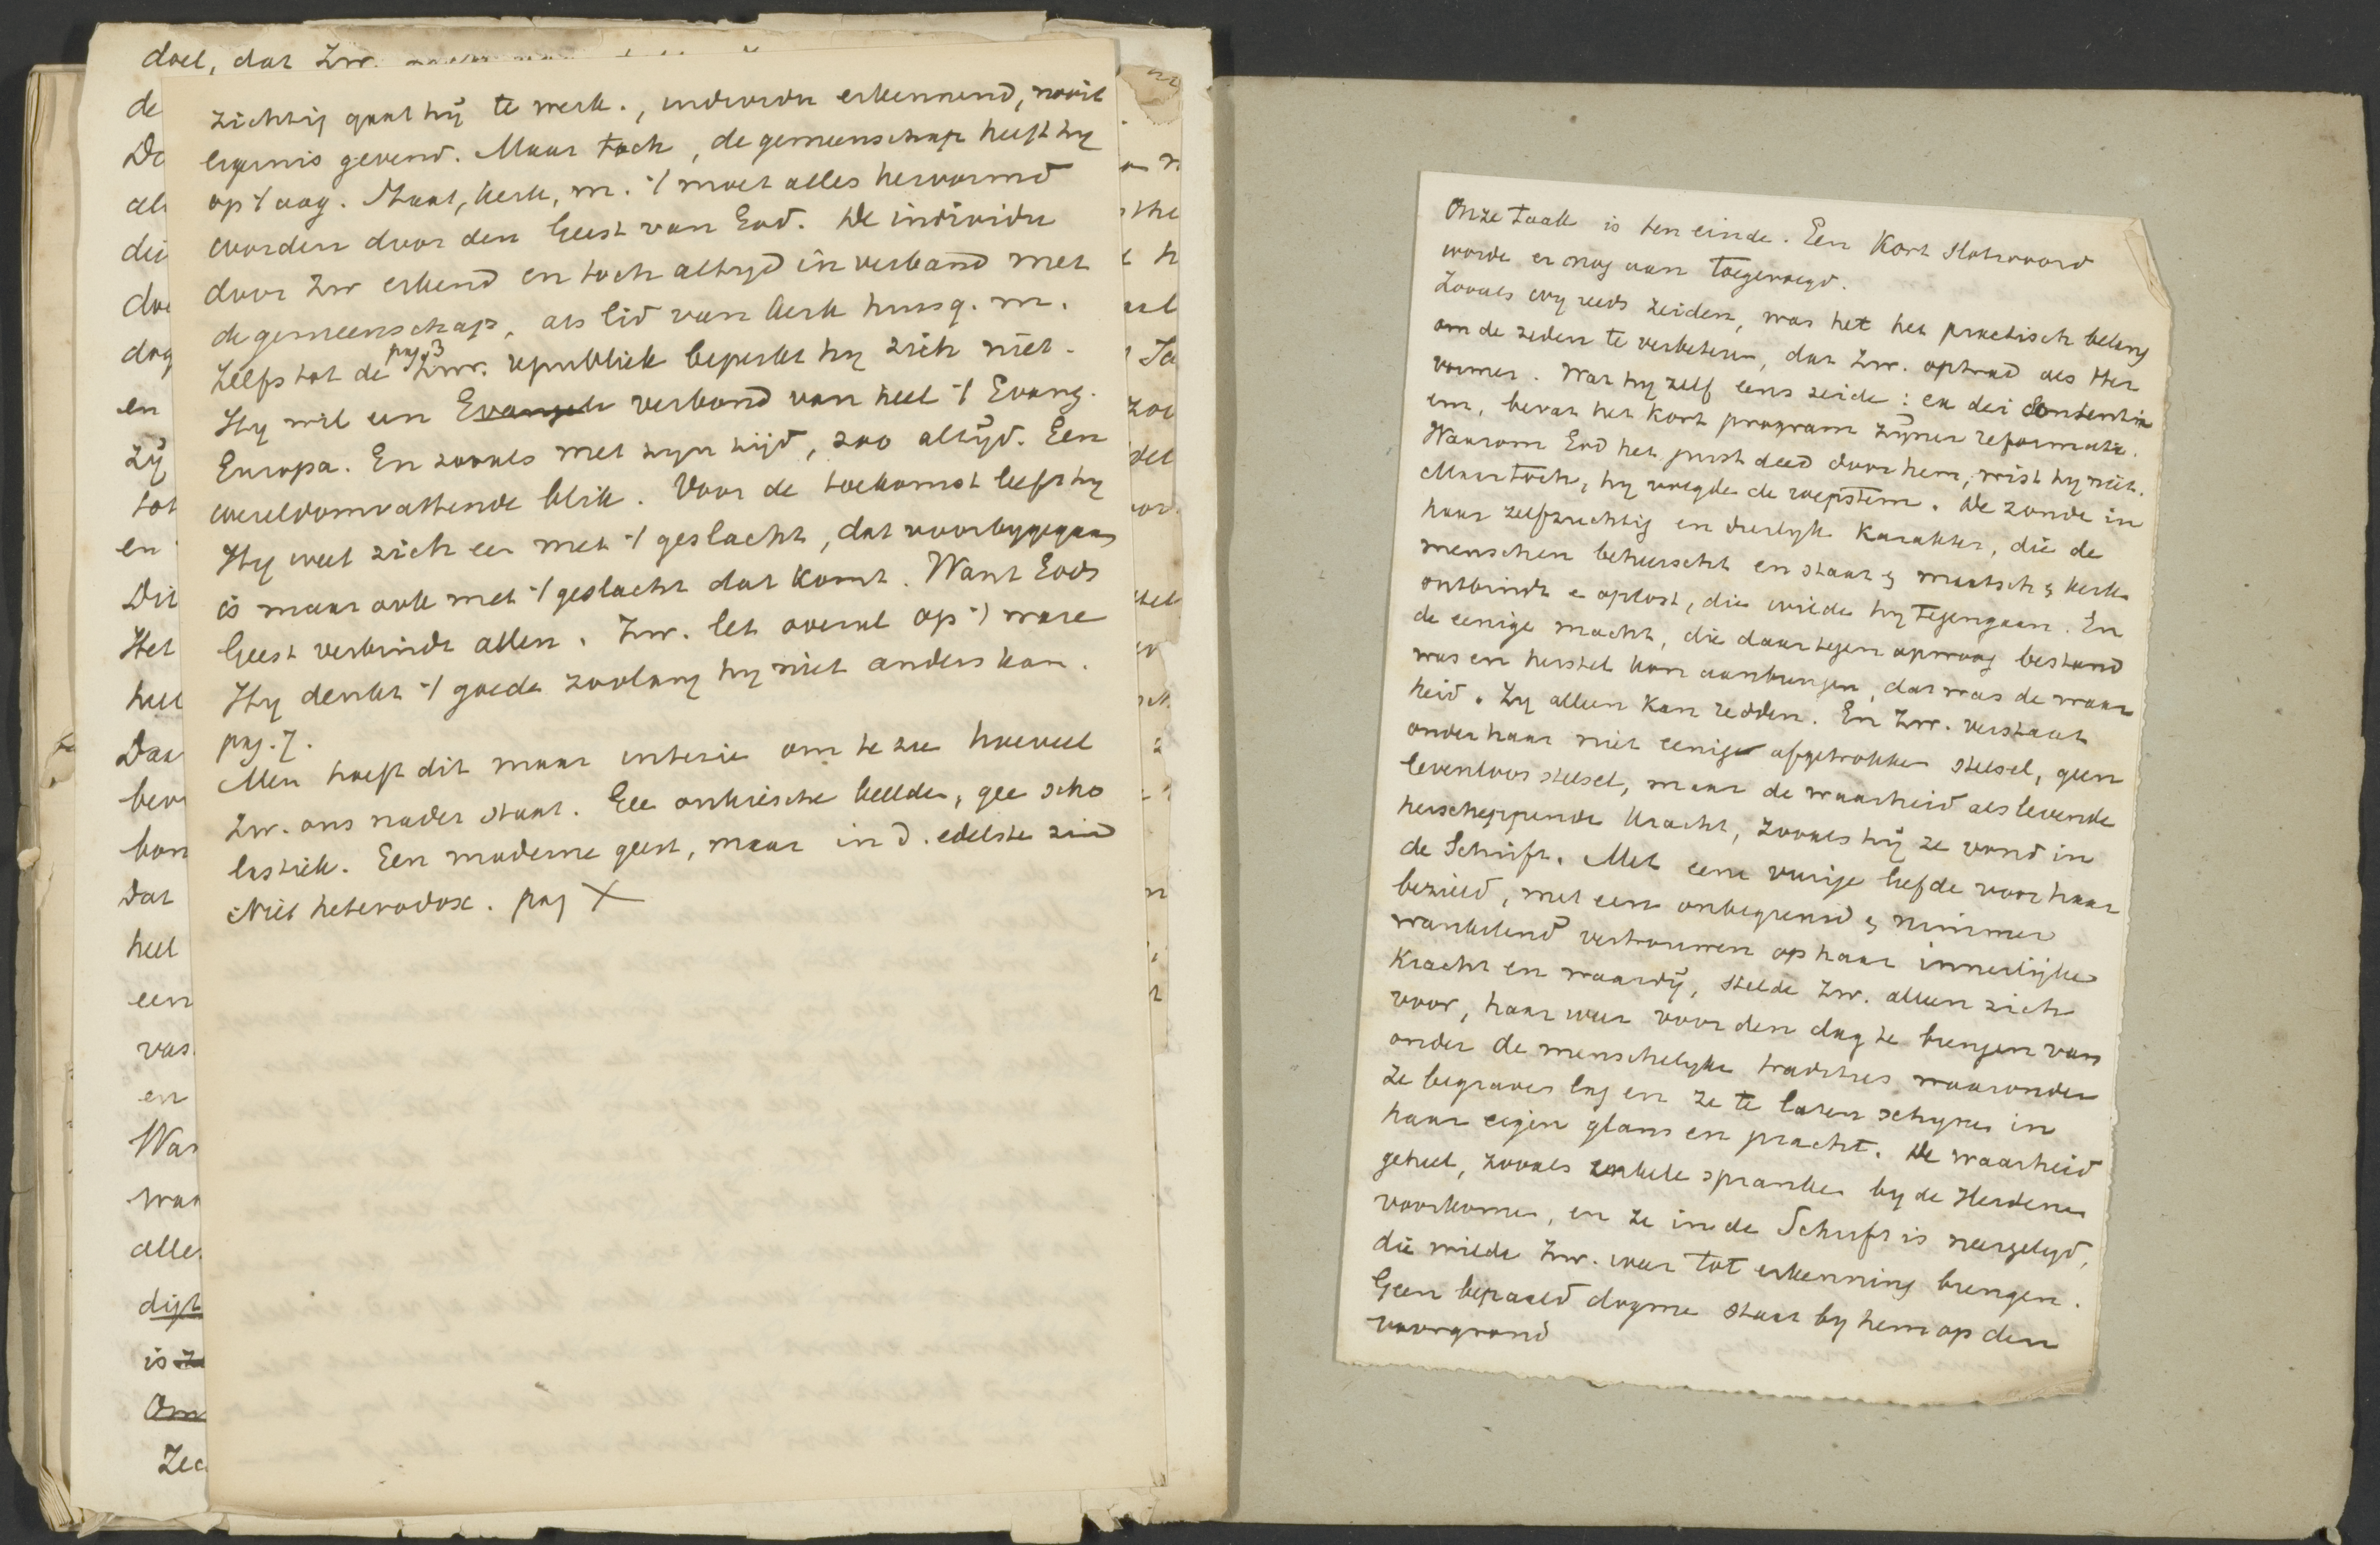 doel, dat Zw.
zichtig gaat hij te werk., individu erkennend, nooit
ergernis gevend. Maar toch, de gemeenschap heeft hy
op 't oog. Staat, kerk, m. 't moet alles hervormd
worden door den Geest van God. De individu
door Zw erkend en toch altyd in verband met
de gemeenschap, als lid van kerk huisg. m.
pag. 3
Zelfs tot de Zwr. republiek beperkt hy zich niet.
Hy wil een Evangeli verbond van heel 't Evang.
Europa. En zooals met zyn tijd, zoo altijd. Een
wereldomvattende blik. Voor de toekomst leeft hy
Hy weet zich een met 't geslacht, dat voorbygegaan
is maar ook met 't geslacht dat komt. Want Gods
Geest verbindt allen. Zw. let overal op 't ware
Hy denkt 't goede zoolang hy niet anders kan.
pag. 7.
Men hoeft dit maar inte zie om te zie hoeveel
Zw. ons nader staat. Gee antieische beelde, gee scho
lastiek. Een moderne geest, maar in d. edelste zin
Niet heterodox. pag X
de
De
als
die
doe
dog
en
zij
tot
en
Dit
Het
heel
Daa
bev
bon
Dat
heel
een
vas
en
Was
waa
alle
digt
is
Om
Zee
Onze taak is ten einde. Een Kort Slotwoord
worde er nog aan toegevoegd.
Zooals wy reeds zeiden, was het het practisch belang
om de zeden te verbeteren, dat Zw. optrad als Her
vormer. Wat hy zelf eens zeide: ex dei sententia
em, bevat het kort program zijner reformatie.
Waarom God het juist deed door hem, wist hy niet.
Maar toch, hy volgde de roepstem. De zonde in
haar zelfzuchtig en dierlyk Karakter, die de
menschen beheerscht en staat & maatsch & kerk
ontbindt e oplost, die wilde hy tegengaan. En
de eenige macht, die daartegen opwoog bestand
was en herstel kon aanbrengen, dat was de waar
heid. Zy alleen Kan redden. En Zw. verstaat
onder haar niet eenige afgetrokken stelsel, geen
levenloos stelsel, maar de waarheid als levende
herscheppende kracht, zooals hij ze vond in
de Schrift. Met eene vurige liefde voor haar
bezield, met een onbegrensd & nimmer
wankelend vertrouwen op haar innerlijke
Kracht en waardij, stelde Zw. alleen zich
voor, haar weer voor den dag te brengen van
onder de menschelyke tradities waaronder
ze begraven lag en ze te laten schynen in
haar eigen glans en pracht. De waarheid
geheel, zooals enkele spranken by de Heidenen
voorkomen, en ze in de Schrift is neergelegd,
die wilde Zw. weer tot erkenning brengen.
Geen bepaald dogma staat by hem op den
voorgrond